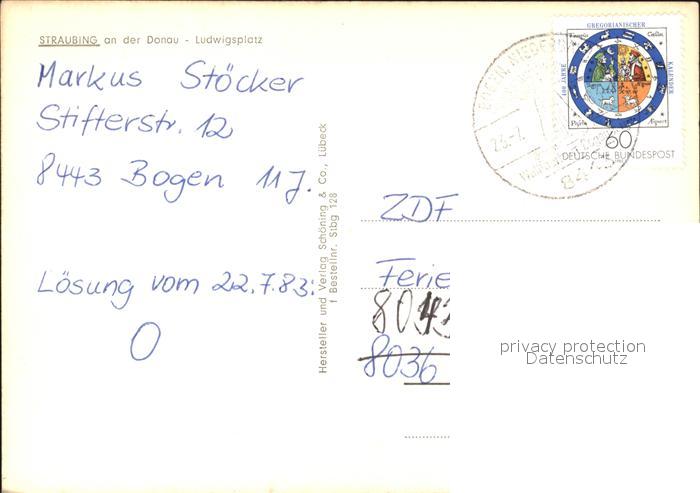 STRAUBING an der Donau - Ludwigsplatz
Markus Stöcker
Stifterstr. 12
8443 Bogen 11 J.
Lösung vom 22.7.83:
O
Hersteller und Verlag Schöning & Co., Lübeck
1 Bestellnr. Stbg 128
GREGORIANISCHER
KALENDER
400 JAHRE
60
DEUTSCHE BUNDESPOST
ZDF
Ferie
8043
8036
privacy protection
Datenschutz